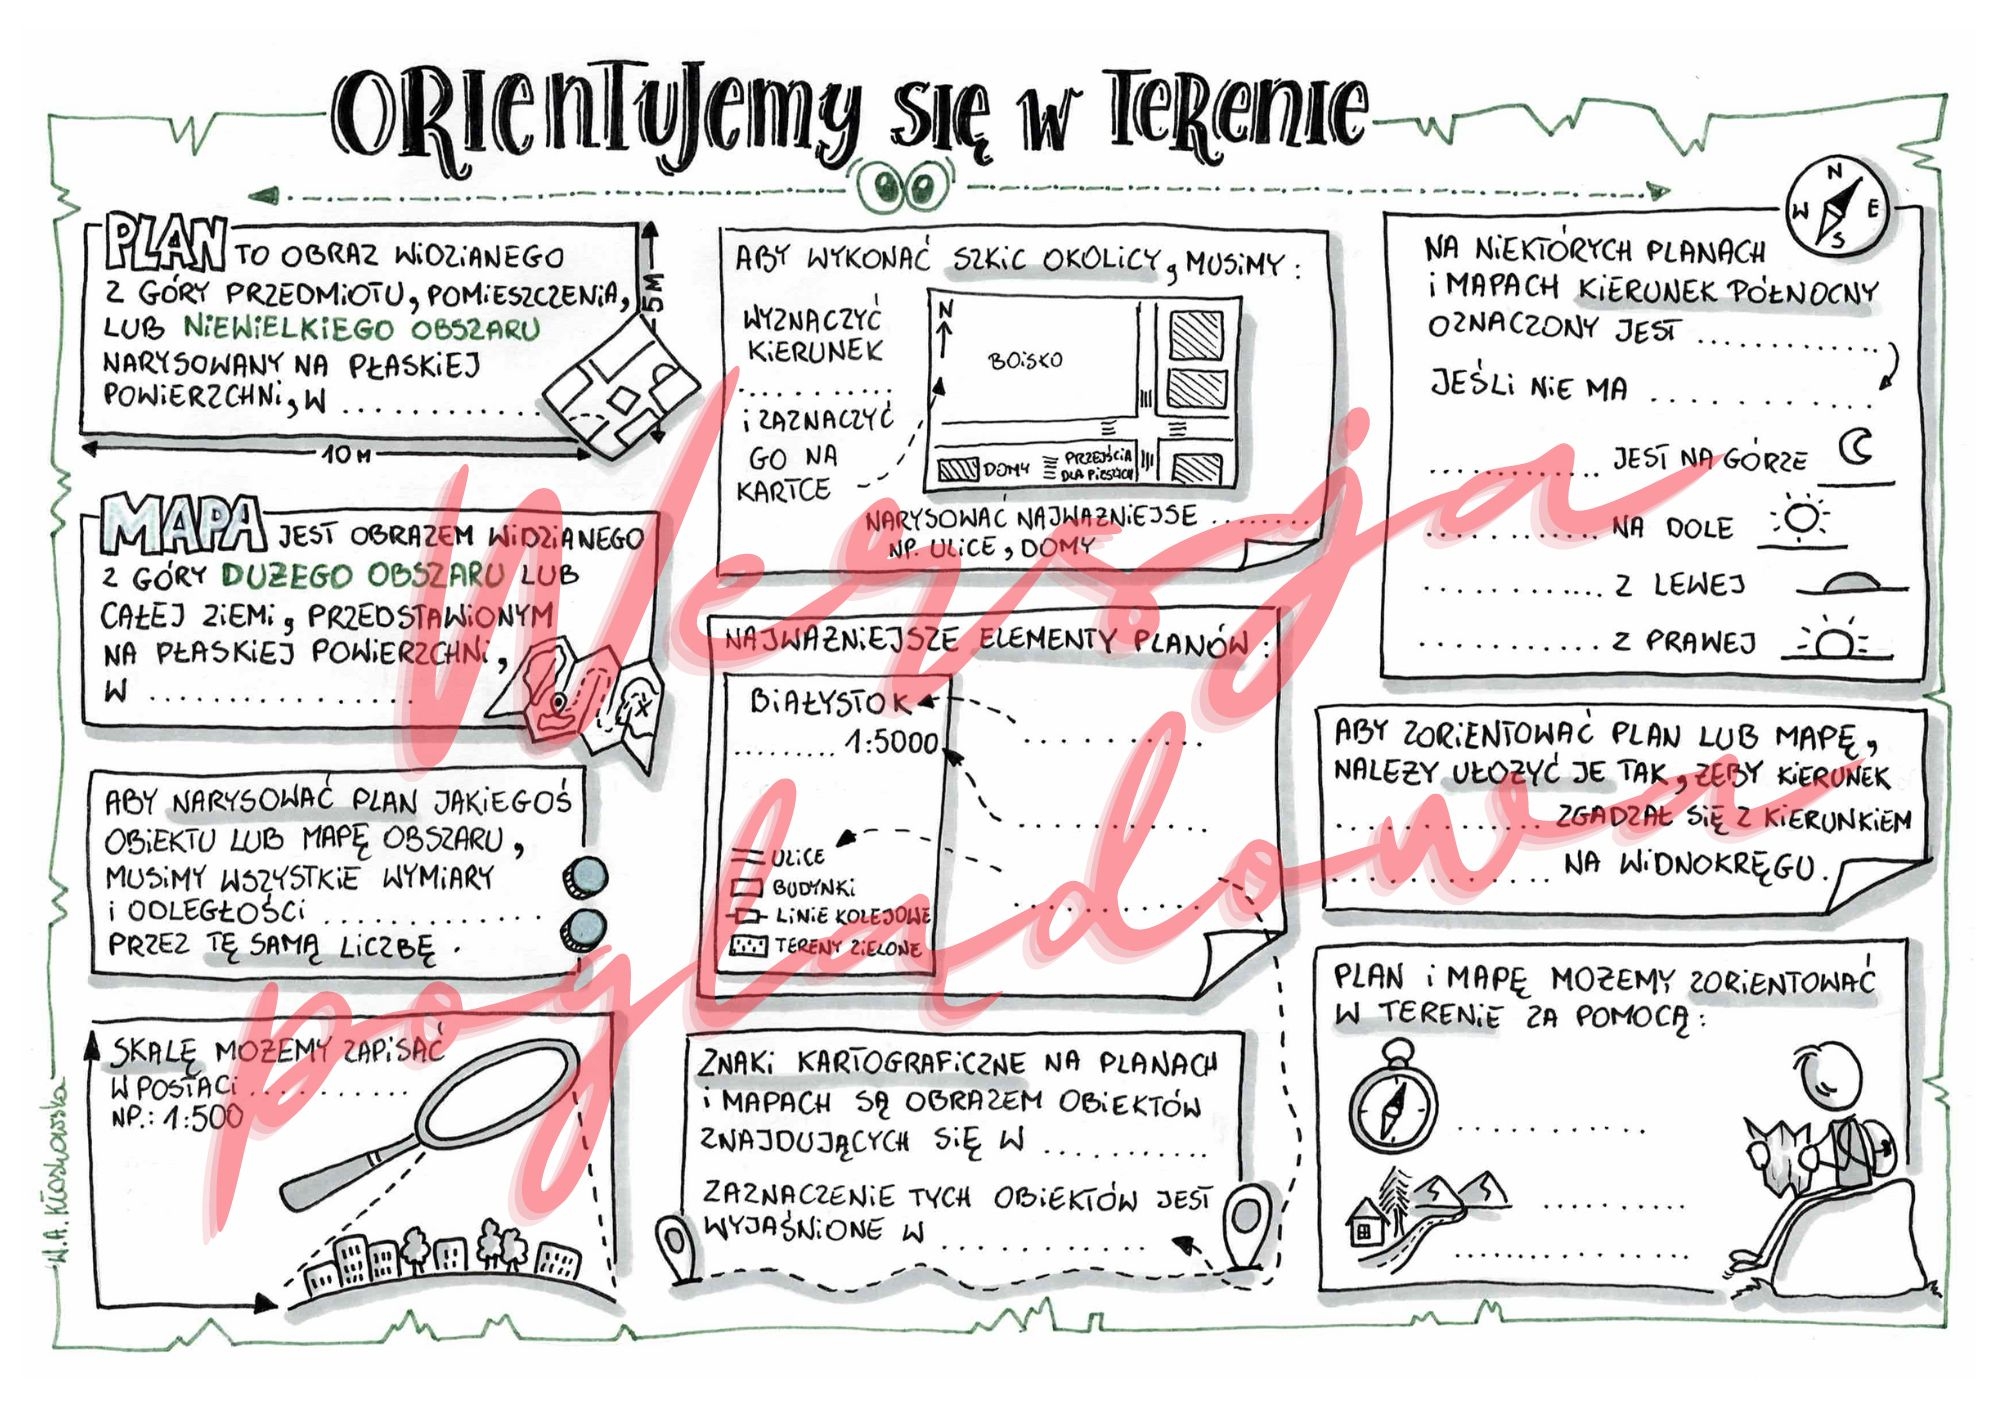 ORIENTUJEMY SIĘ W TERENIE
PLAN TO OBRAZ WIDZIANEGO
Z GÓRY PRZEDMIOTU, POMIESZCZENIA,
LUB NIEWIELKIEGO OBSZARU
NARYSOWANY NA PŁASKIEJ
POWIERZCHNI, W ..............
5 M
10 M
MAPA JEST OBRAZEM WIDZIANEGO
Z GÓRY DUŻEGO OBSZARU LUB
CAŁEJ ZIEMI, PRZEDSTAWIONYM
NA PŁASKIEJ POWIERZCHNI,
W ..................
ABY NARYSOWAĆ PLAN JAKIEGOŚ
OBIEKTU LUB MAPĘ OBSZARU,
MUSIMY WSZYSTKIE WYMIARY
I ODLEGŁOŚCI ...............
PRZEZ TĘ SAMĄ LICZBĘ.
SKALĘ MOŻEMY ZAPISAĆ
W POSTACI ............
NP.: 1:500
W.A.Kłosowska
ABY WYKONAĆ SZKIC OKOLICY, MUSIMY:
WYZNACZYĆ
KIERUNEK
............
I ZAZNACZYĆ
GO NA
KARTCE
N
BOISKO
DOMY
PRZEJŚCIA
DLA PIESZYCH
NARYSOWAĆ NAJWAŻNIEJSZE .........
NP. ULICE, DOMY
NAJWAŻNIEJSZE ELEMENTY PLANÓW:
BIAŁYSTOK
.......... 1:5000
ULICE
BUDYNKI
LINIE KOLEJOWE
TERENY ZIELONE
............
..............
..............
ZNAKI KARTOGRAFICZNE NA PLANACH
I MAPACH SĄ OBRAZEM OBIEKTÓW
ZNAJDUJĄCYCH SIĘ W ............
ZAZNACZENIE TYCH OBIEKTÓW JEST
WYJAŚNIONE W .............
N
W E
S
NA NIEKTÓRYCH PLANACH
I MAPACH KIERUNEK PÓŁNOCNY
OZNACZONY JEST ..............
JEŚLI NIE MA .............
............ JEST NA GÓRZE
............ NA DOLE
............ Z LEWEJ
............ Z PRAWEJ
ABY ZORIENTOWAĆ PLAN LUB MAPĘ,
NALEŻY UŁOŻYĆ JE TAK, ŻEBY KIERUNEK
............... ZGADZAŁ SIĘ Z KIERUNKIEM
............... NA WIDNOKRĘGU.
PLAN I MAPĘ MOŻEMY ZORIENTOWAĆ
W TERENIE ZA POMOCĄ:
.............
...........
................
Wersja
poglądowa